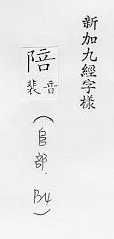 新加九經字樣
陪
音
裴
(𨸏部. B4)